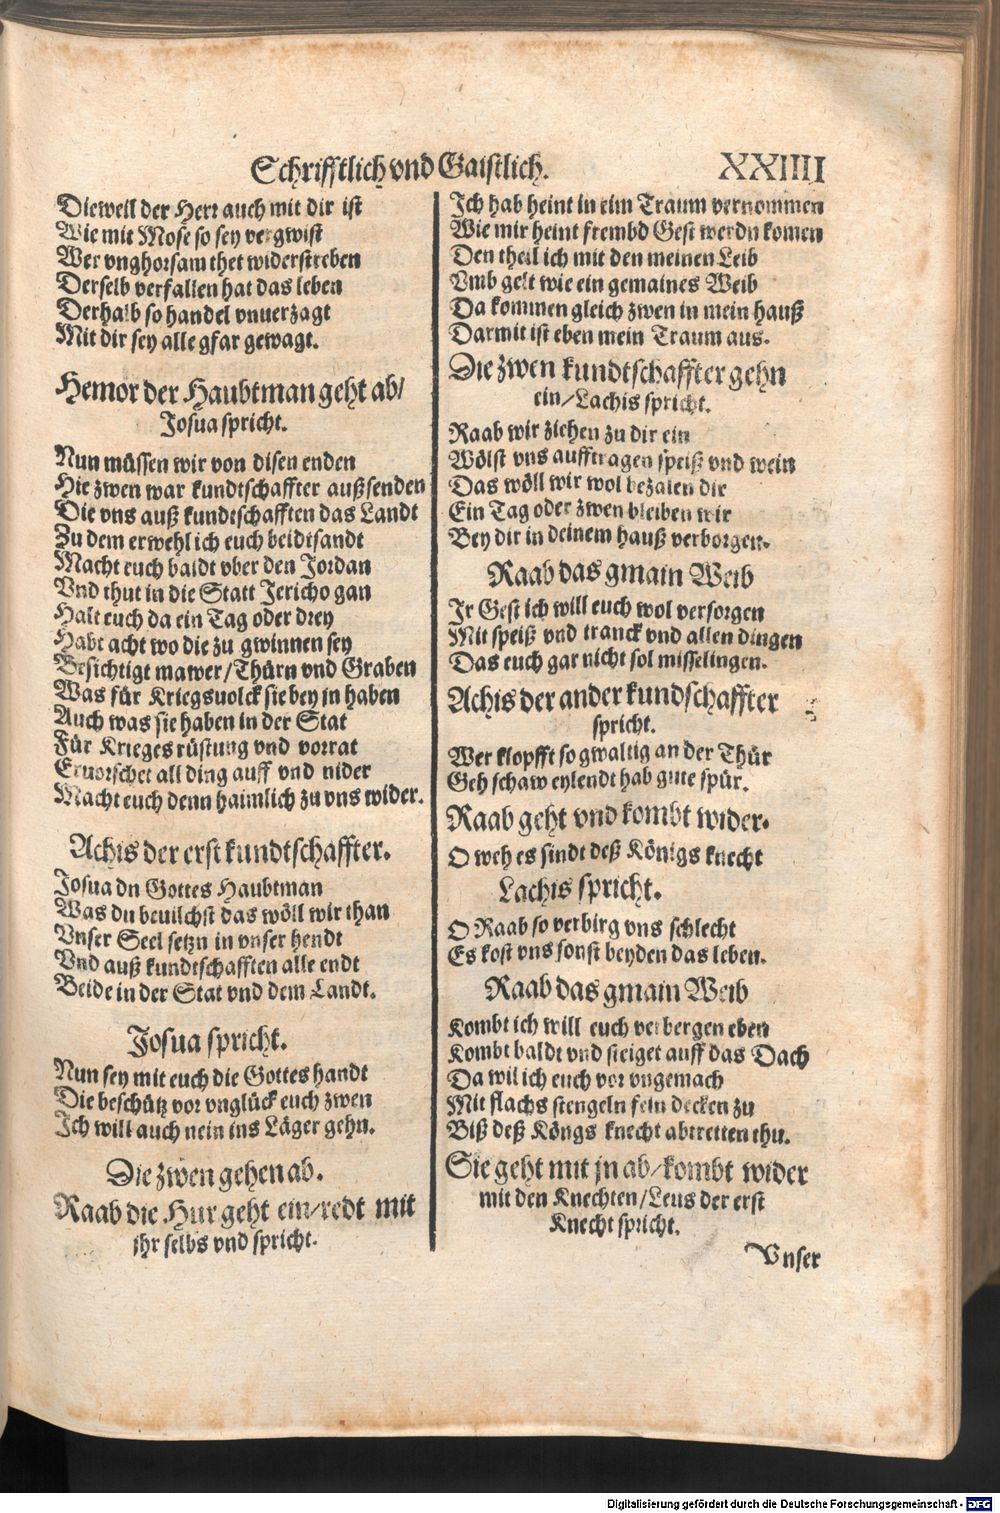 Schrifftlich vnd Gaistlich. XXIIII
Dieweil der Herr auch mit dir ist
Wie mit Mose so sey vergwist
Wer vnghorsam thet widerstreben
Derselb verfallen hat das leben
Derhalb so handel vnuerzagt
Mit dir sey alle gfar gewagt.
Hemor der Haubtman geht ab/
Josua spricht.
Nun müssen wir von disen enden
Hie zwen war kundtschaffter außsenden
Die vns auß kundtschafften das Landt
Zu dem erwehl ich euch beidisandt
Macht euch baldt vber den Jordan
Vnd thut in die Statt Jericho gan
Halt euch da ein Tag oder drey
Habt acht wo die zu gwinnen sey
Besichtigt mawer/Thürn vnd Graben
Was für Kriegsuolck sie bey in haben
Auch was sie haben in der Stat
Für Krieges rüstung vnd vorrat
Eruorschet all ding auff vnd nider
Macht euch denn haimlich zu vns wider.
Achis der erst kundtschaffter.
Josua dn Gottes Haubtman
Was du beuilchst das wöll wir than
Vnser Seel setzn in vnser hendt
Vnd auß kundtschafften alle endt
Beide in der Stat vnd dem Landt.
Josua spricht.
Nun sey mit euch die Gottes handt
Die beschütz vor vnglück euch zwen
Ich will auch nein ins Läger gehn.
Die zwen gehen ab.
Raab die Hur geht ein/redt mit
ihr selbs vnd spricht.
Ich hab heint in eim Traum vernommen
Wie mir heint frembd Gest werdn komen
Den theil ich mit den meinen Leib
Vmb gelt wie ein gemaines Weib
Da kommen gleich zwen in mein hauß
Darmit ist eben mein Traum aus.
Die zwen kundtschaffter gehn
ein/Lachis spricht.
Raab wir ziehen zu dir ein
Wölst vns aufftragen speiß vnd wein
Das wöll wir wol bezalen dir
Ein Tag oder zwen bleiben wir
Bey dir in deinem hauß verborgen.
Raab das gmain Weib
Ir Gest ich will euch wol versorgen
Mit speiß vnd tranck vnd allen dingen
Das euch gar nicht sol misselingen.
Achis der ander kundschaffter
spricht.
Wer klopfft so gwaltig an der Thür
Geh schaw eylendt hab gute spür.
Raab geht vnd kombt wider.
O weh es sindt deß Königs knecht
Lachis spricht.
O Raab so verbirg vns schlecht
Es kost vns sonst beyden das leben.
Raab das gmain Weib
Kombt ich will euch verbergen eben
Kombt baldt vnd steiget auff das Dach
Da wil ich euch vor vngemach
Mit flachs stengeln fein decken zu
Biß deß Köngs knecht abtretten thu.
Sie geht mit jn ab/kombt wider
mit den Knechten/Leus der erst
Knecht spricht.
Vnser
Digitalisierung gefördert durch die Deutsche Forschungsgemeinschaft - DFG